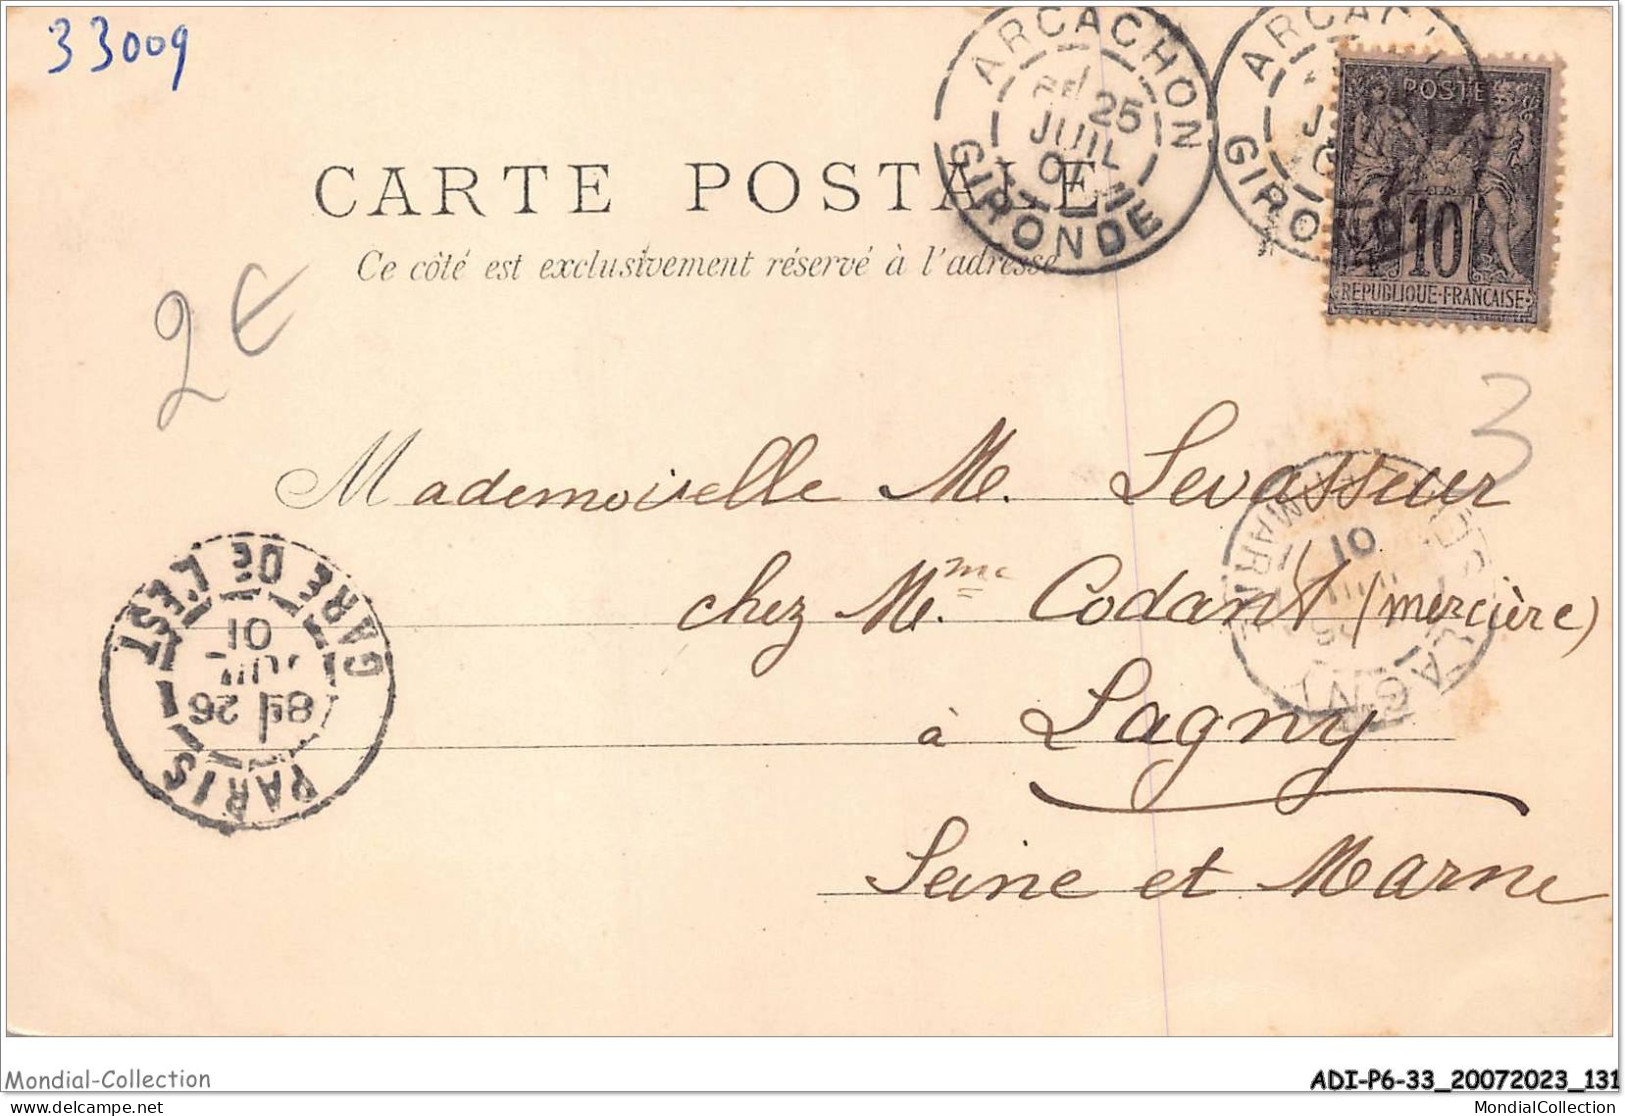 33009
ARCACHON
25
JUIL
01
GIRONDE
ARCACH
GIRONDE
POSTE
10
REPUBLIQUE·FRANÇAISE
CARTE POSTALE
Ce côté est exclusivement réservé à l'adresse
2€
3
Mademoiselle M. Levasseur
chez Mme Codant (mercière)
à Lagny
Seine et Marne
PARIS
8E 26
JUIL
01
GARE DE L'EST
LAGNY
01
MARNE
Mondial-Collection
ADI-P6-33_20072023_131
delcampe.net
MondialCollection